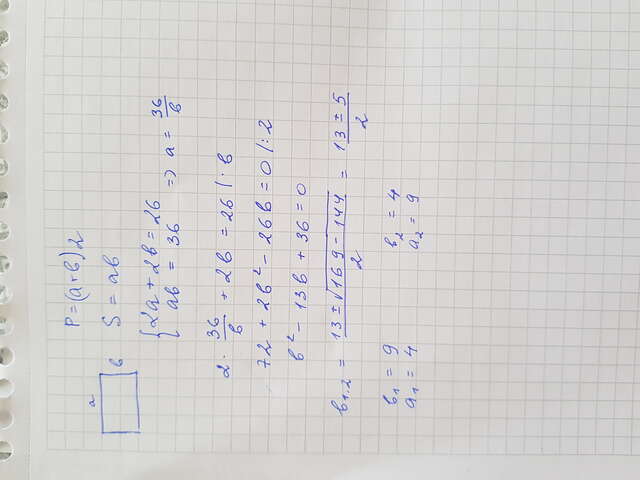 P = (a + b) 2
a
b
S = ab
{ 2a + 2b = 26
ab = 36 => a = 36/b
2 · 36/b + 2b = 26 / · b
72 + 2b² - 26b = 0 /: 2
b² - 13b + 36 = 0
b1,2 = (13 ± √(169 - 144))/2 = (13 ± 5)/2
b1 = 9 b2 = 4
a1 = 4 a2 = 9